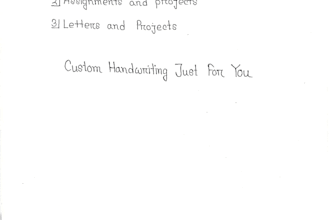 2) Assignments and projects
3) Letters and Projects
Custom Handwriting Just For You